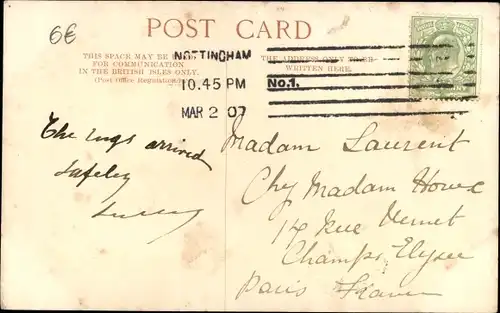 6€
POST CARD
THIS SPACE MAY BE
FOR COMMUNICATION
IN THE BRITISH ISLES ONLY.
(Post Office Regulation.)
THE ADDRESS ONLY TO BE
WRITTEN HERE.
NOTTINGHAM
10.45 PM
MAR 2 07
No.1.
The rugs arrived
safely
Madam Laurent
Chez Madam
14 Rue Vernet
Champs Elysee
Paris France